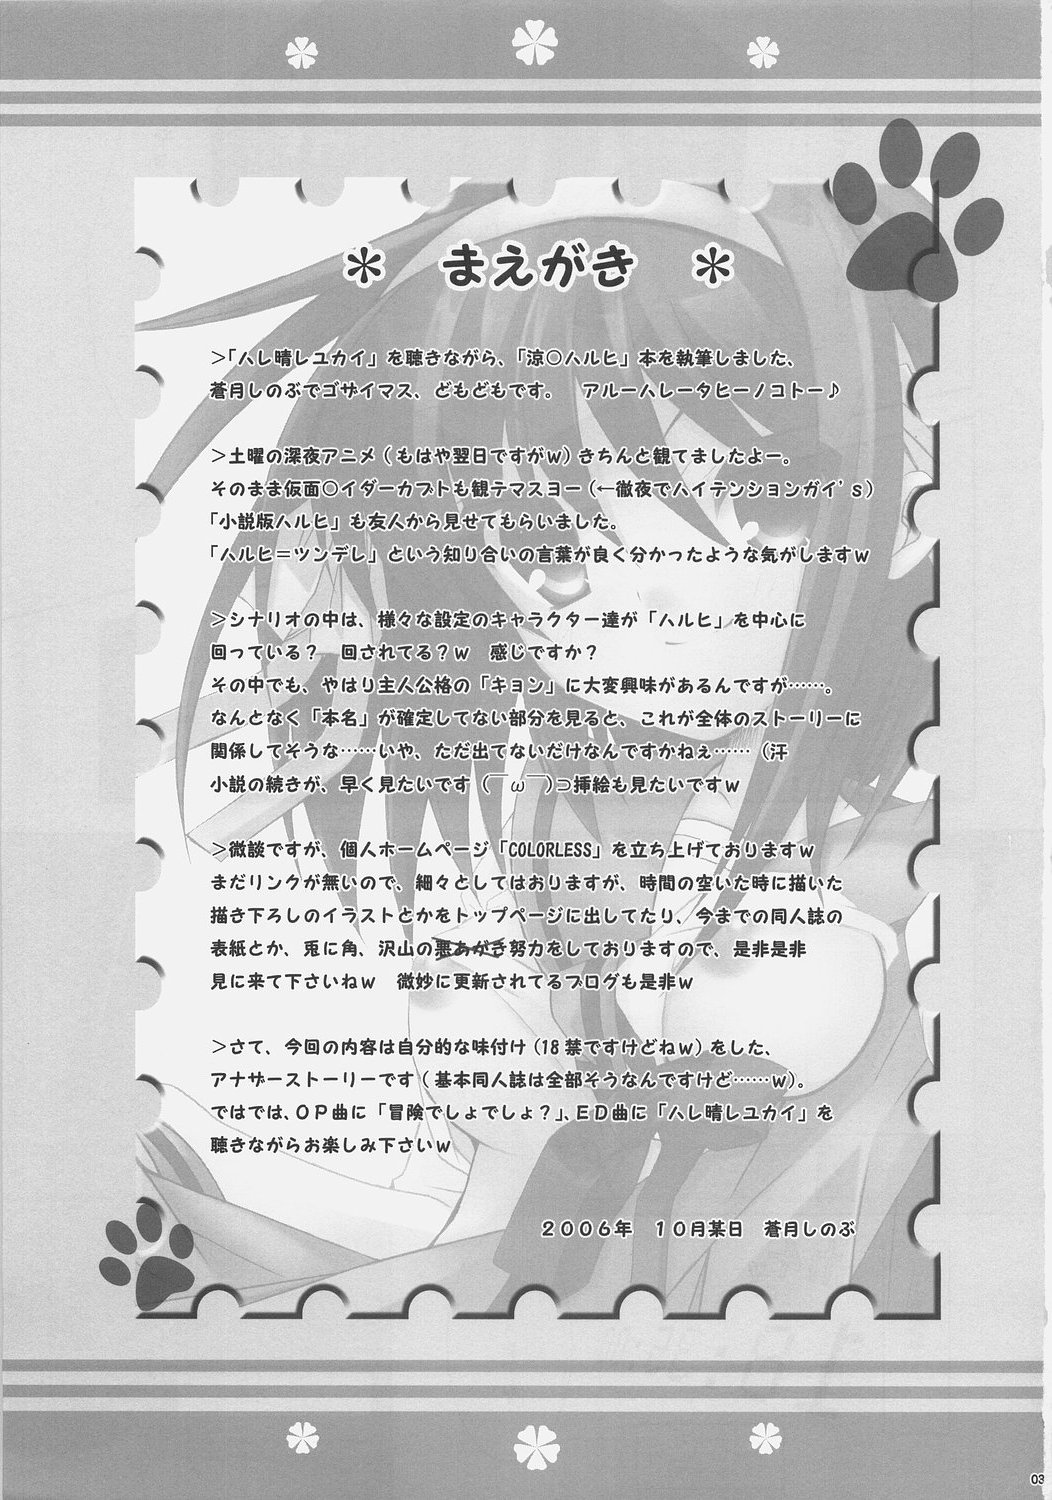 ＊ まえがき ＊
＞「ハレ晴レユカイ」を聴きながら、「涼○ハルヒ」本を執筆しました、
蒼月しのぶでゴザイマス、どもどもです。　アルーハレータヒーノコトー♪
＞土曜の深夜アニメ（もはや翌日ですがｗ）きちんと観てましたよー。
そのまま仮面○イダーカブトも観テマスヨー（←徹夜でハイテンションガイ'ｓ）
「小説版ハルヒ」も友人から見せてもらいました。
「ハルヒ＝ツンデレ」という知り合いの言葉が良く分かったような気がしますｗ
＞シナリオの中は、様々な設定のキャラクター達が「ハルヒ」を中心に
回っている？　回されてる？ｗ　感じですか？
その中でも、やはり主人公格の「キョン」に大変興味があるんですが……。
なんとなく「本名」が確定してない部分を見ると、これが全体のストーリーに
関係してそうな……いや、ただ出てないだけなんですかねぇ……（汗
小説の続きが、早く見たいです（￣ω￣）⊃挿絵も見たいですｗ
＞微談ですが、個人ホームページ「COLORLESS」を立ち上げておりますｗ
まだリンクが無いので、細々としてはおりますが、時間の空いた時に描いた
描き下ろしのイラストとかをトップページに出してたり、今までの同人誌の
表紙とか、兎に角、沢山の悪あがき努力をしておりますので、是非是非
見に来て下さいねｗ　微妙に更新されてるブログも是非ｗ
＞さて、今回の内容は自分的な味付け（18禁ですけどねｗ）をした、
アナザーストーリーです（基本同人誌は全部そうなんですけど……ｗ）。
ではでは、ＯＰ曲に「冒険でしょでしょ？」、ＥＤ曲に「ハレ晴レユカイ」を
聴きながらお楽しみ下さいｗ
２００６年　１０月某日　蒼月しのぶ
03